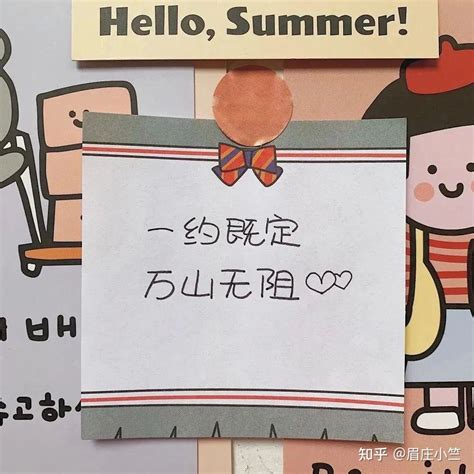 Hello, Summer!
一约既定
万山无阻♡♡
배
고하
知乎 @眉庄小竺